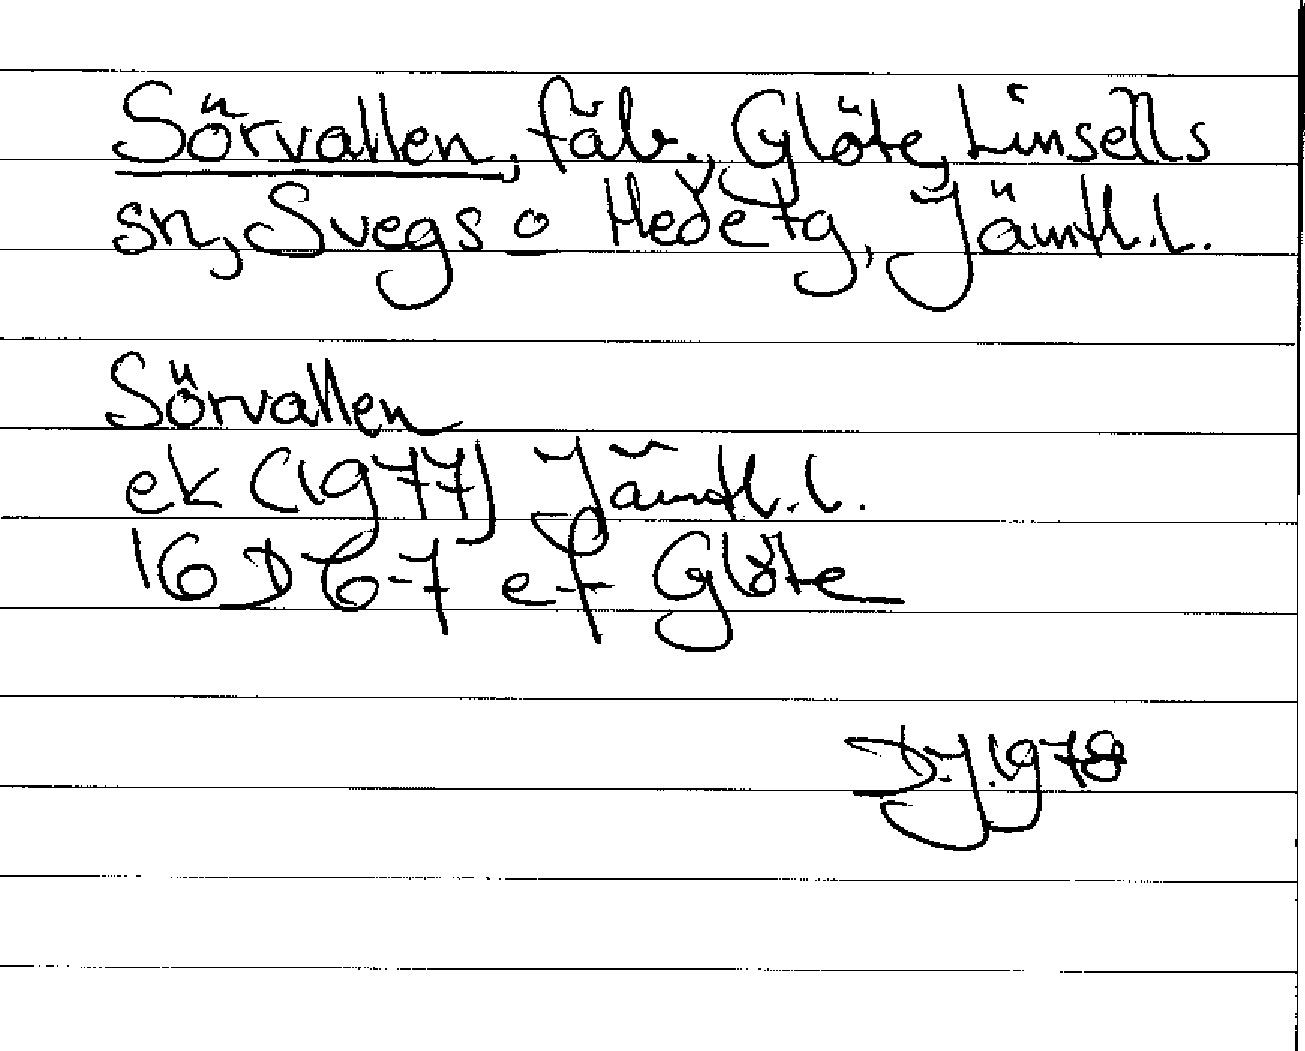 Sörvallen, fäb., Glöte, Linsells
sn, Svegs o Hede tg, Jämtl. l.
Sörvallen
ek (1977) Jämtl. l.
16 D 6-7 ef Glöte
D.J. 1978